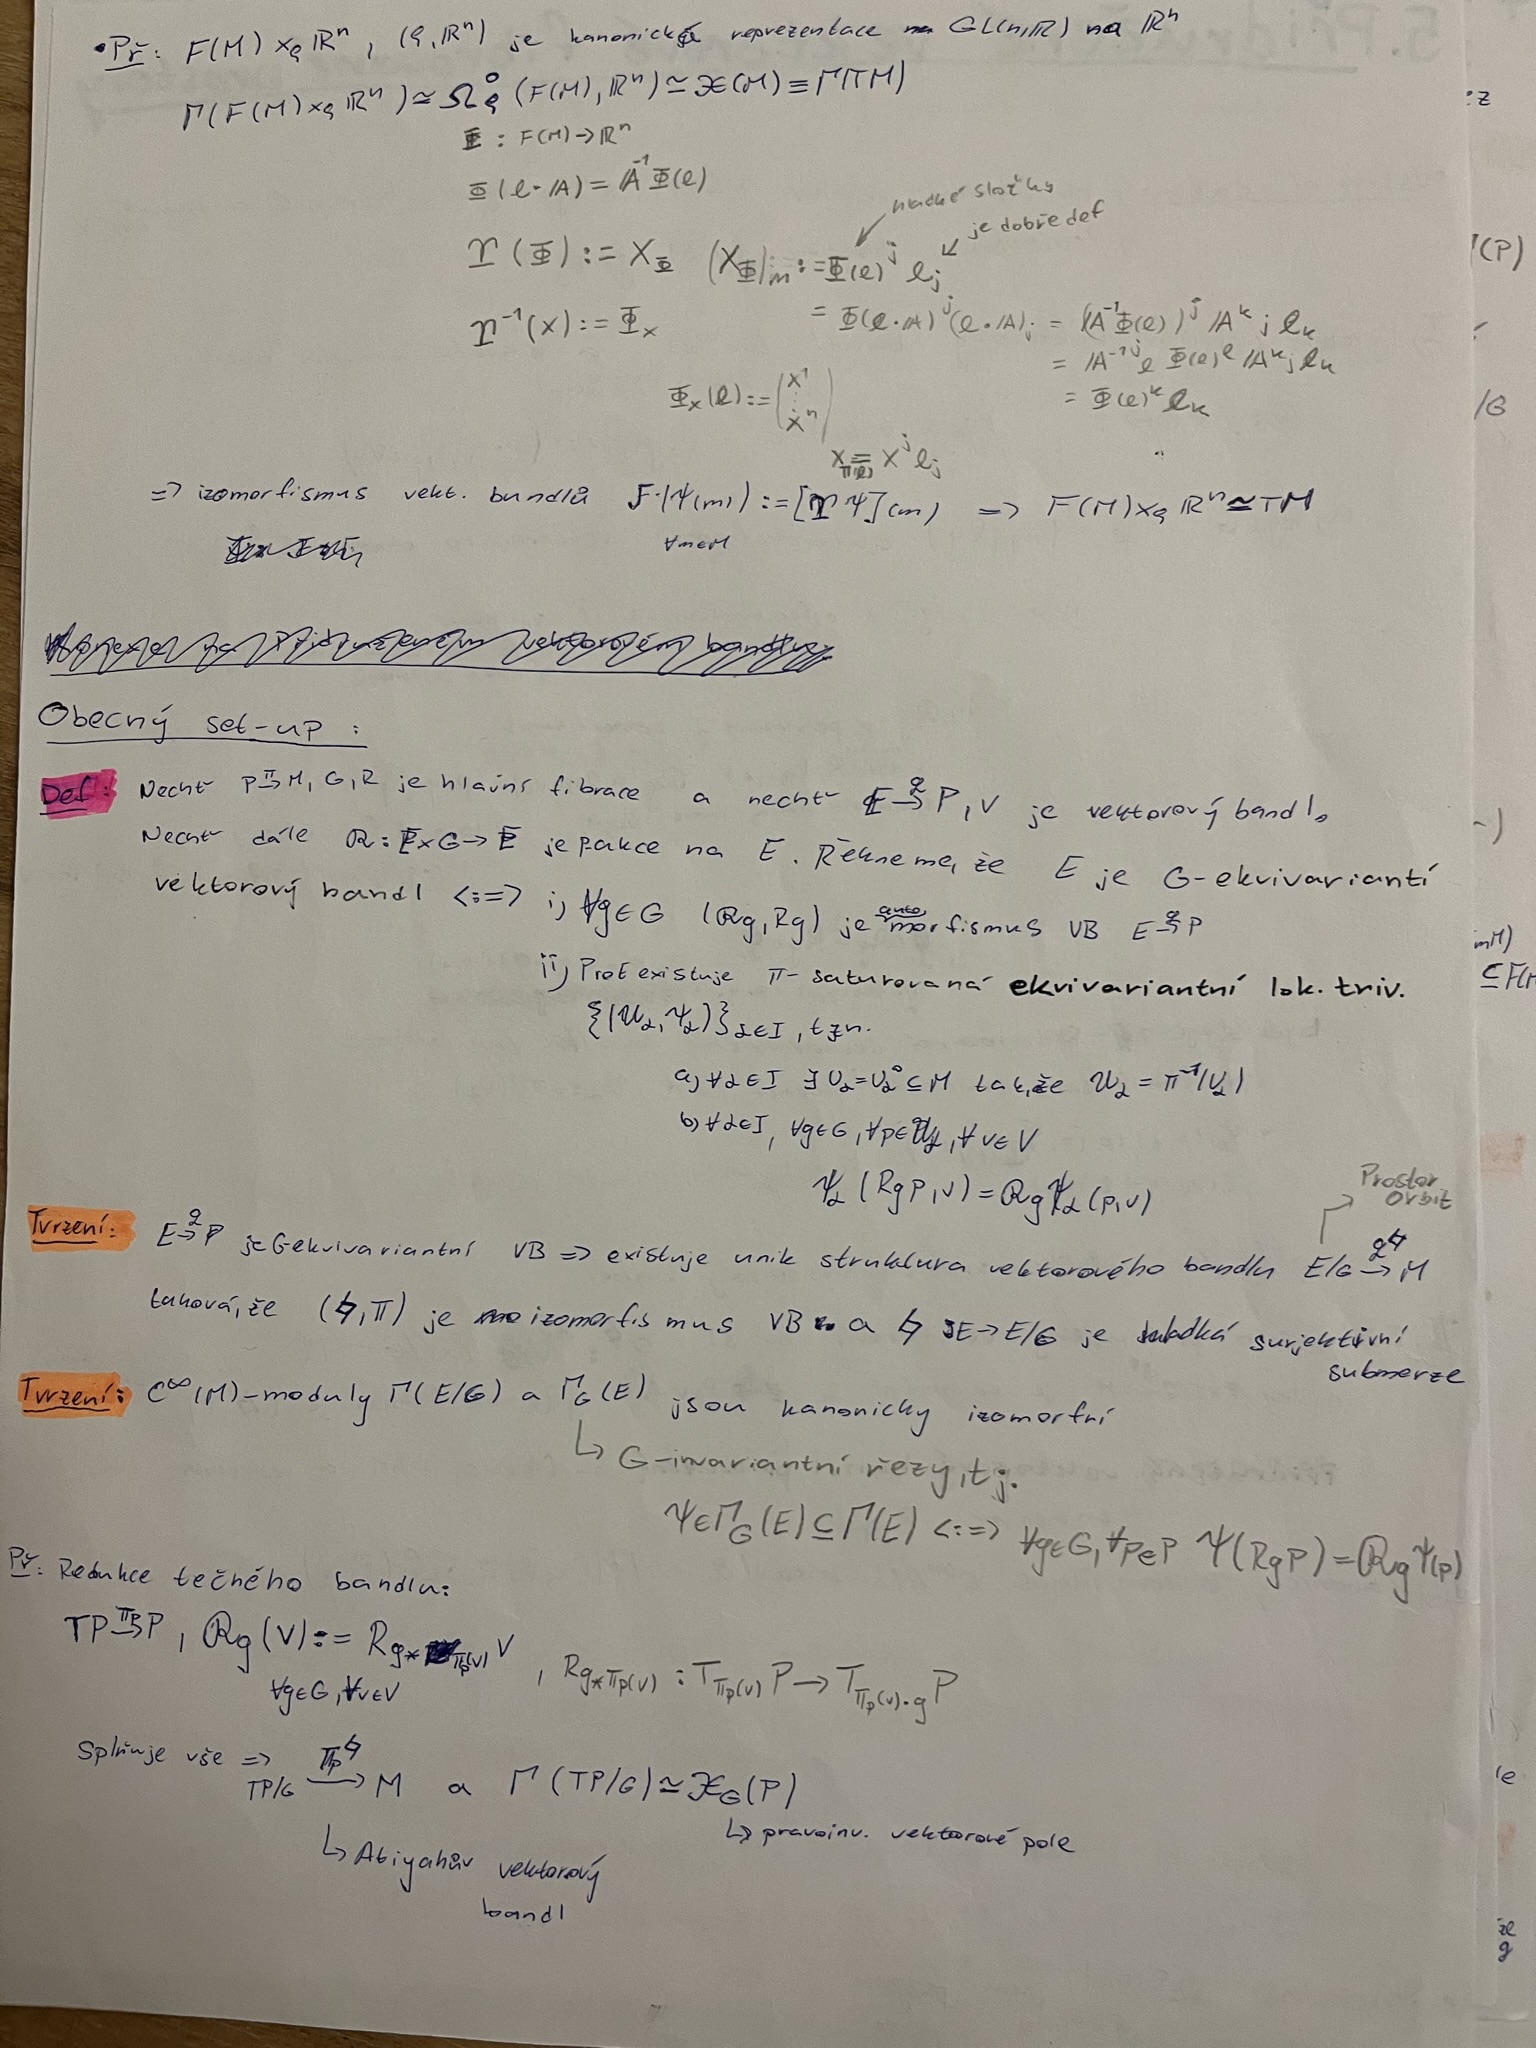 • Př: F(M) ×ϱ ℝⁿ, (ϱ, ℝⁿ) je kanonická reprezentace GL(n,ℝ) na ℝⁿ
Γ(F(M) ×ϱ ℝⁿ) ≃ Ω⁰ϱ (F(M), ℝⁿ) ≃ 𝔛(M) ≡ Γ(TM)
Φ : F(M) → ℝⁿ
Φ(e·𝔸) = 𝔸⁻¹ Φ(e)
hladké složky
je dobře def
Υ(Φ) := X_Φ (X_Φ)|ₘ := Φ(e)ʲ eⱼ
Υ⁻¹(X) := Φ_X = Φ(e·𝔸)ʲ (e·𝔸)ⱼ = (𝔸⁻¹Φ(e))ʲ 𝔸ᵏⱼ eₖ
= 𝔸⁻¹ʲₗ Φ(e)ˡ 𝔸ᵏⱼ eₖ
Φ_X(e) := (X¹ ⋮ Xⁿ) = Φ(e)ᵏ eₖ
X_π(e) = Xʲ eⱼ
=> izomorfismus vekt. bundlů F(Ψ(m)) := [Υ Ψ](m) => F(M) ×ϱ ℝⁿ ≃ TM
∀m∈M
Obecný set-up :
Def: Nechť P →π M, G, R je hlavní fibrace a nechť E →q P, V je vektorový bandl.
Nechť dále ℛ: E×G → E je pakce na E. Řekneme, že E je G-ekvivariantí
vektorový bandl <:=> i) ∀g∈G (ℛg, Rg) je automorfismus VB E →q P
ii) Prot existuje π-saturovaná ekvivariantní lok. triv.
{(𝒰α, Ψα)}α∈I, tzn.
a) ∀α∈I ∃ Uα = Uα° ⊆ M tak, že 𝒰α = π⁻¹(Uα)
b) ∀α∈I, ∀g∈G, ∀p∈𝒰α, ∀v∈V
Ψα (Rg p, v) = ℛg Ψα (p, v)
Prostor
orbit
Tvrzení: E →q P je G-ekvivariantní VB => existuje unik struktura vektorového bandlu E/G →q^♮ M
taková, že (♮, π) je izomorfismus VB a ♮ : E → E/G je hladká surjektivní
submerze
Tvrzení: C^∞(M)-moduly Γ(E/G) a Γ_G(E) jsou kanonicky izomorfní
↳ G-invariantní řezy, tj.
Ψ∈Γ_G(E) ⊆ Γ(E) <:=> ∀g∈G, ∀p∈P Ψ(Rg p) = ℛg Ψ(p)
Př: Redukce tečného bandlu:
TP →πP P, ℛg(V) := Rg* πp(v) V, Rg* πp(v) : T_πp(v) P → T_πp(v)·g P
∀g∈G, ∀v∈V
Splňuje vše => TP/G →πp^♮ M a Γ(TP/G) ≃ 𝔛_G(P)
↳ pravoinv. vektorové pole
↳ Atiyahův vektorový
bandl